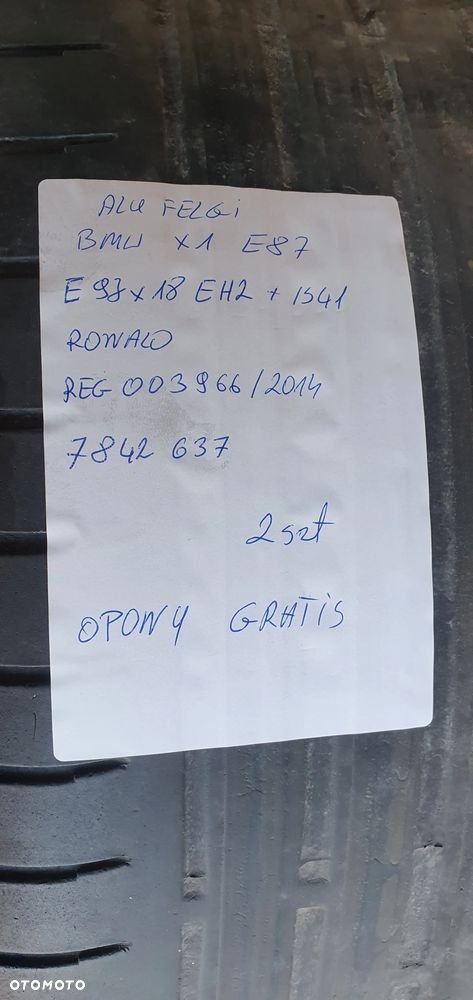 ALU FELGi
BMW X1 E87
E 9J x 18 EH2 + IS41
RONAL
REG 003966/2014
7842 637
2 szt
OPONY GRATIS
OTOMOTO